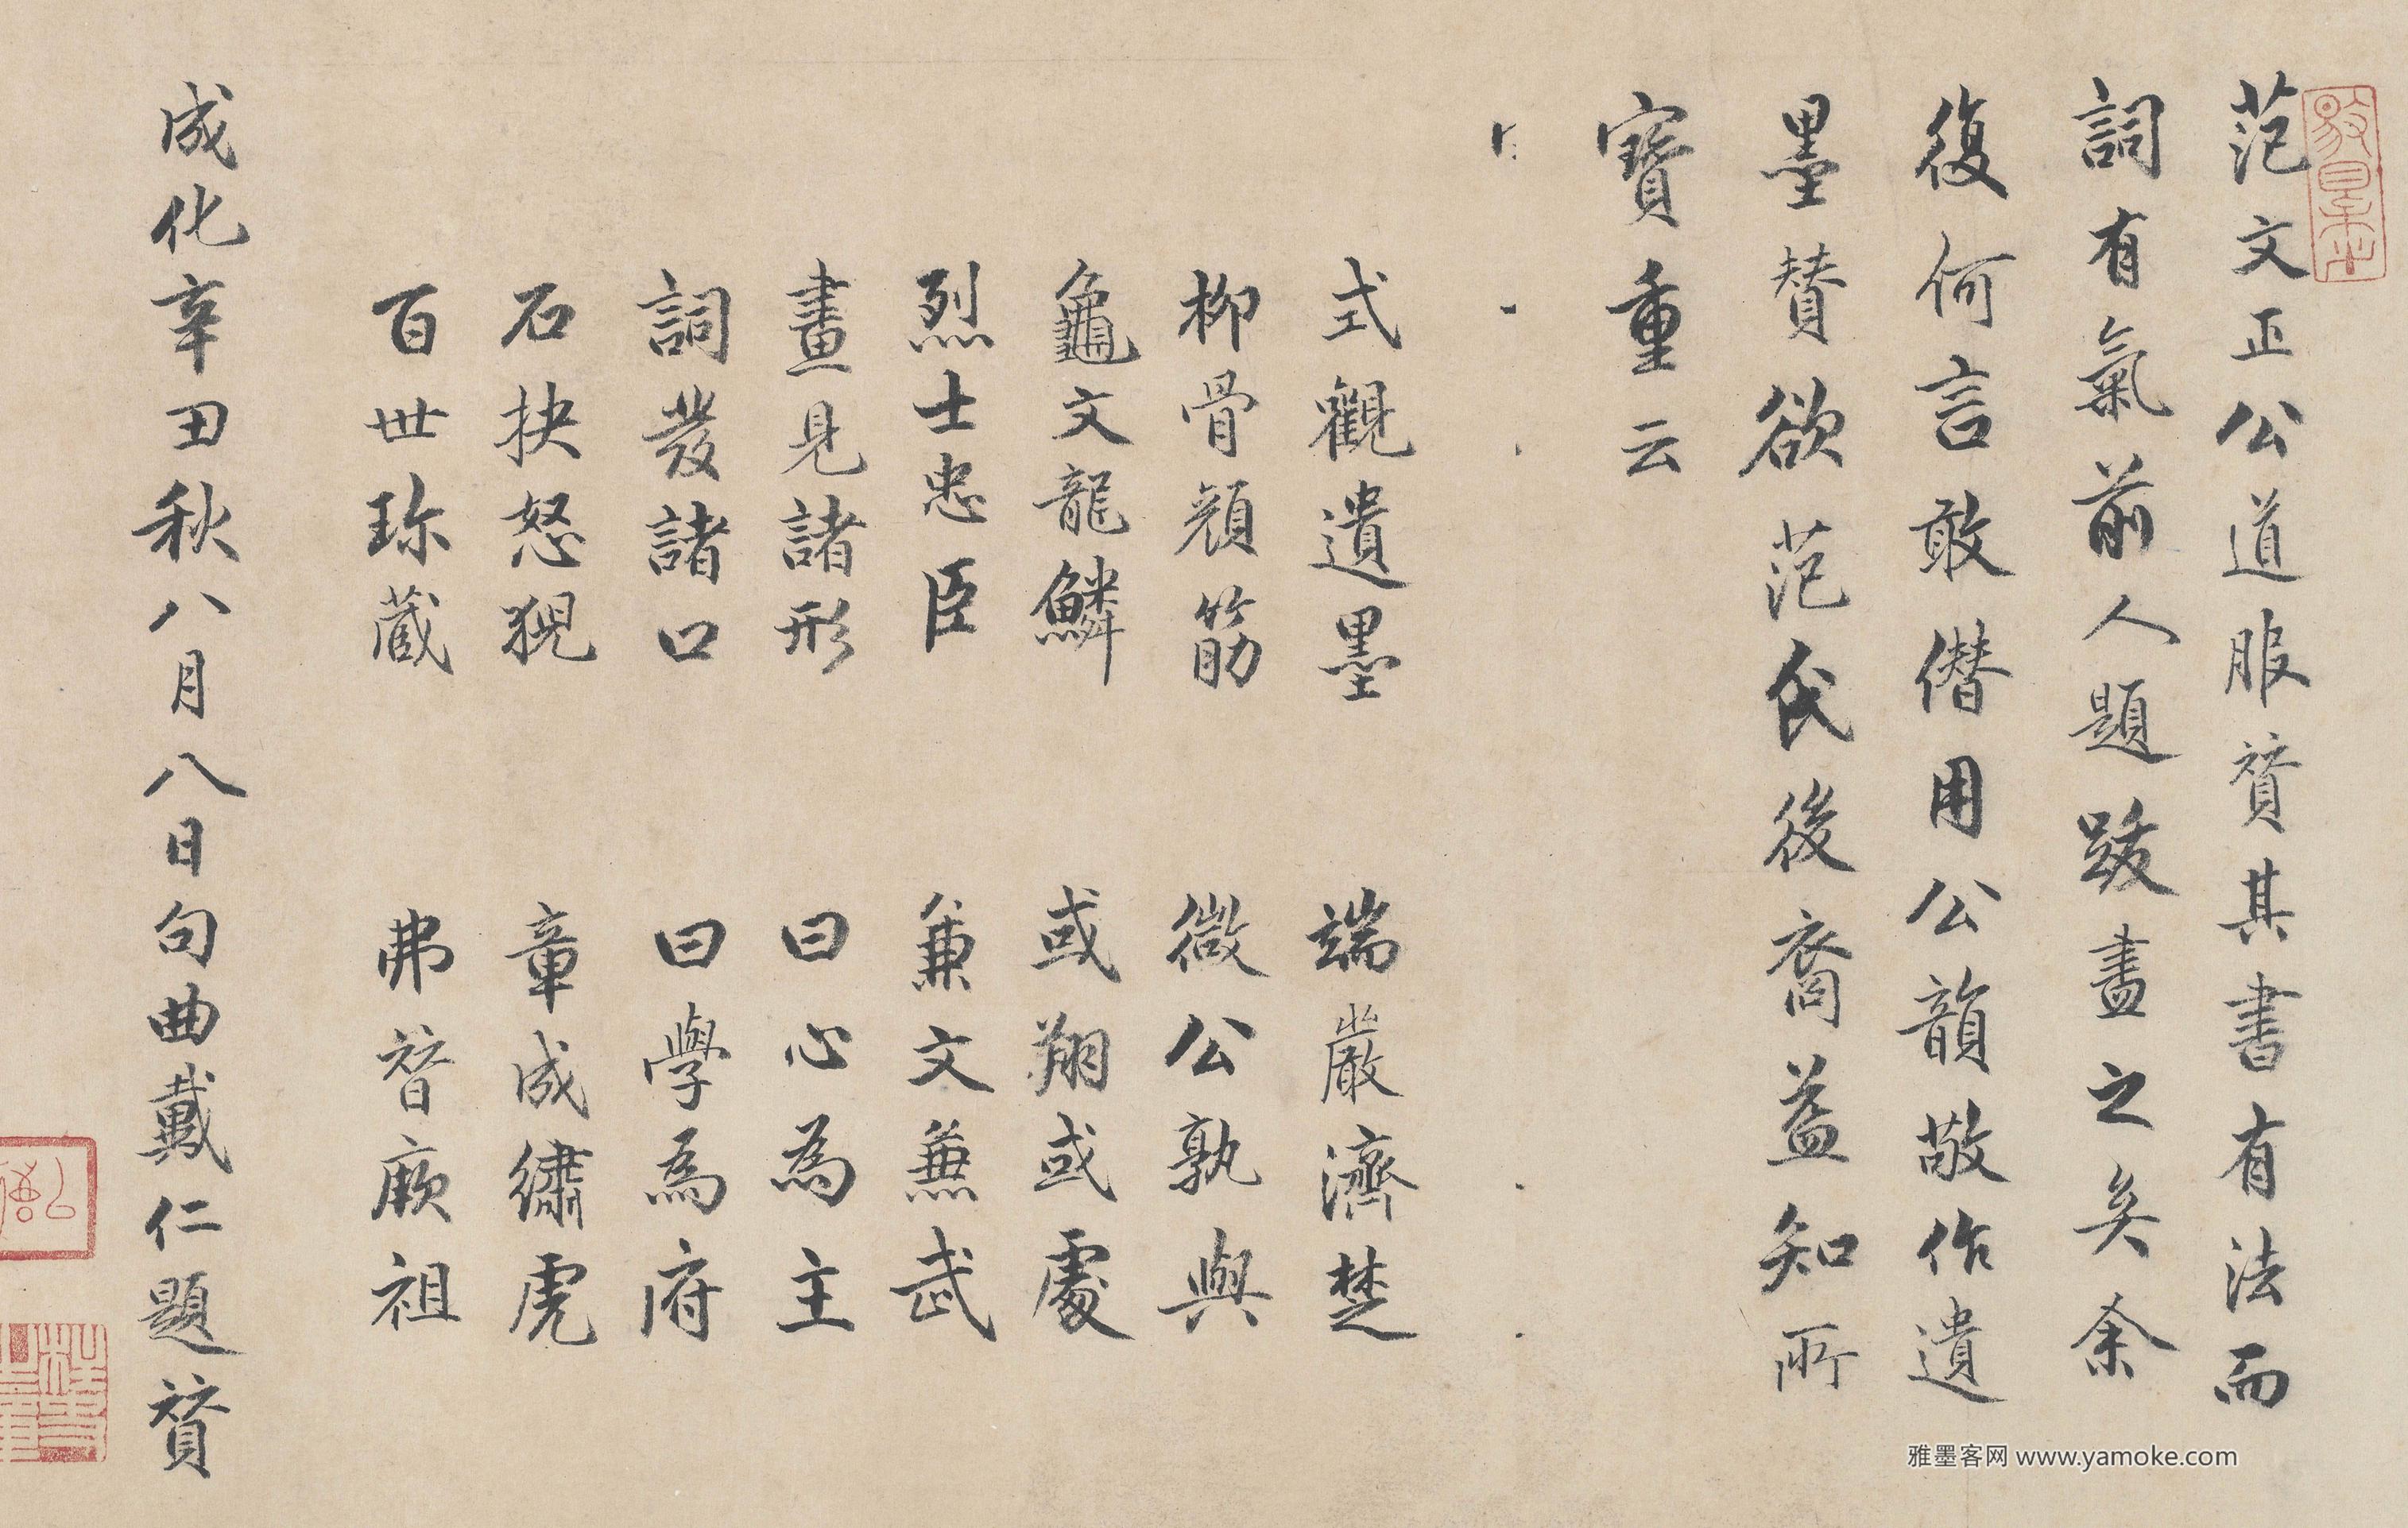 范文正公道服賛其書有法而
詞有氣前人題跋盡之矣余
復何言敢僣用公韻敬作遺
墨賛欲范氏後裔益知所
寶重云
式觀遺墨 端嚴濟楚
柳骨顔筋 微公孰與
龜文龍鱗 或翔或處
烈士忠臣 兼文兼武
畫見諸形 曰心為主
詞發諸口 曰學為府
石抉怒猊 章成繡虎
百世珎藏 弗替厥祖
成化辛丑秋八月八日句曲戴仁題賛
雅墨客网 www.yamoke.com